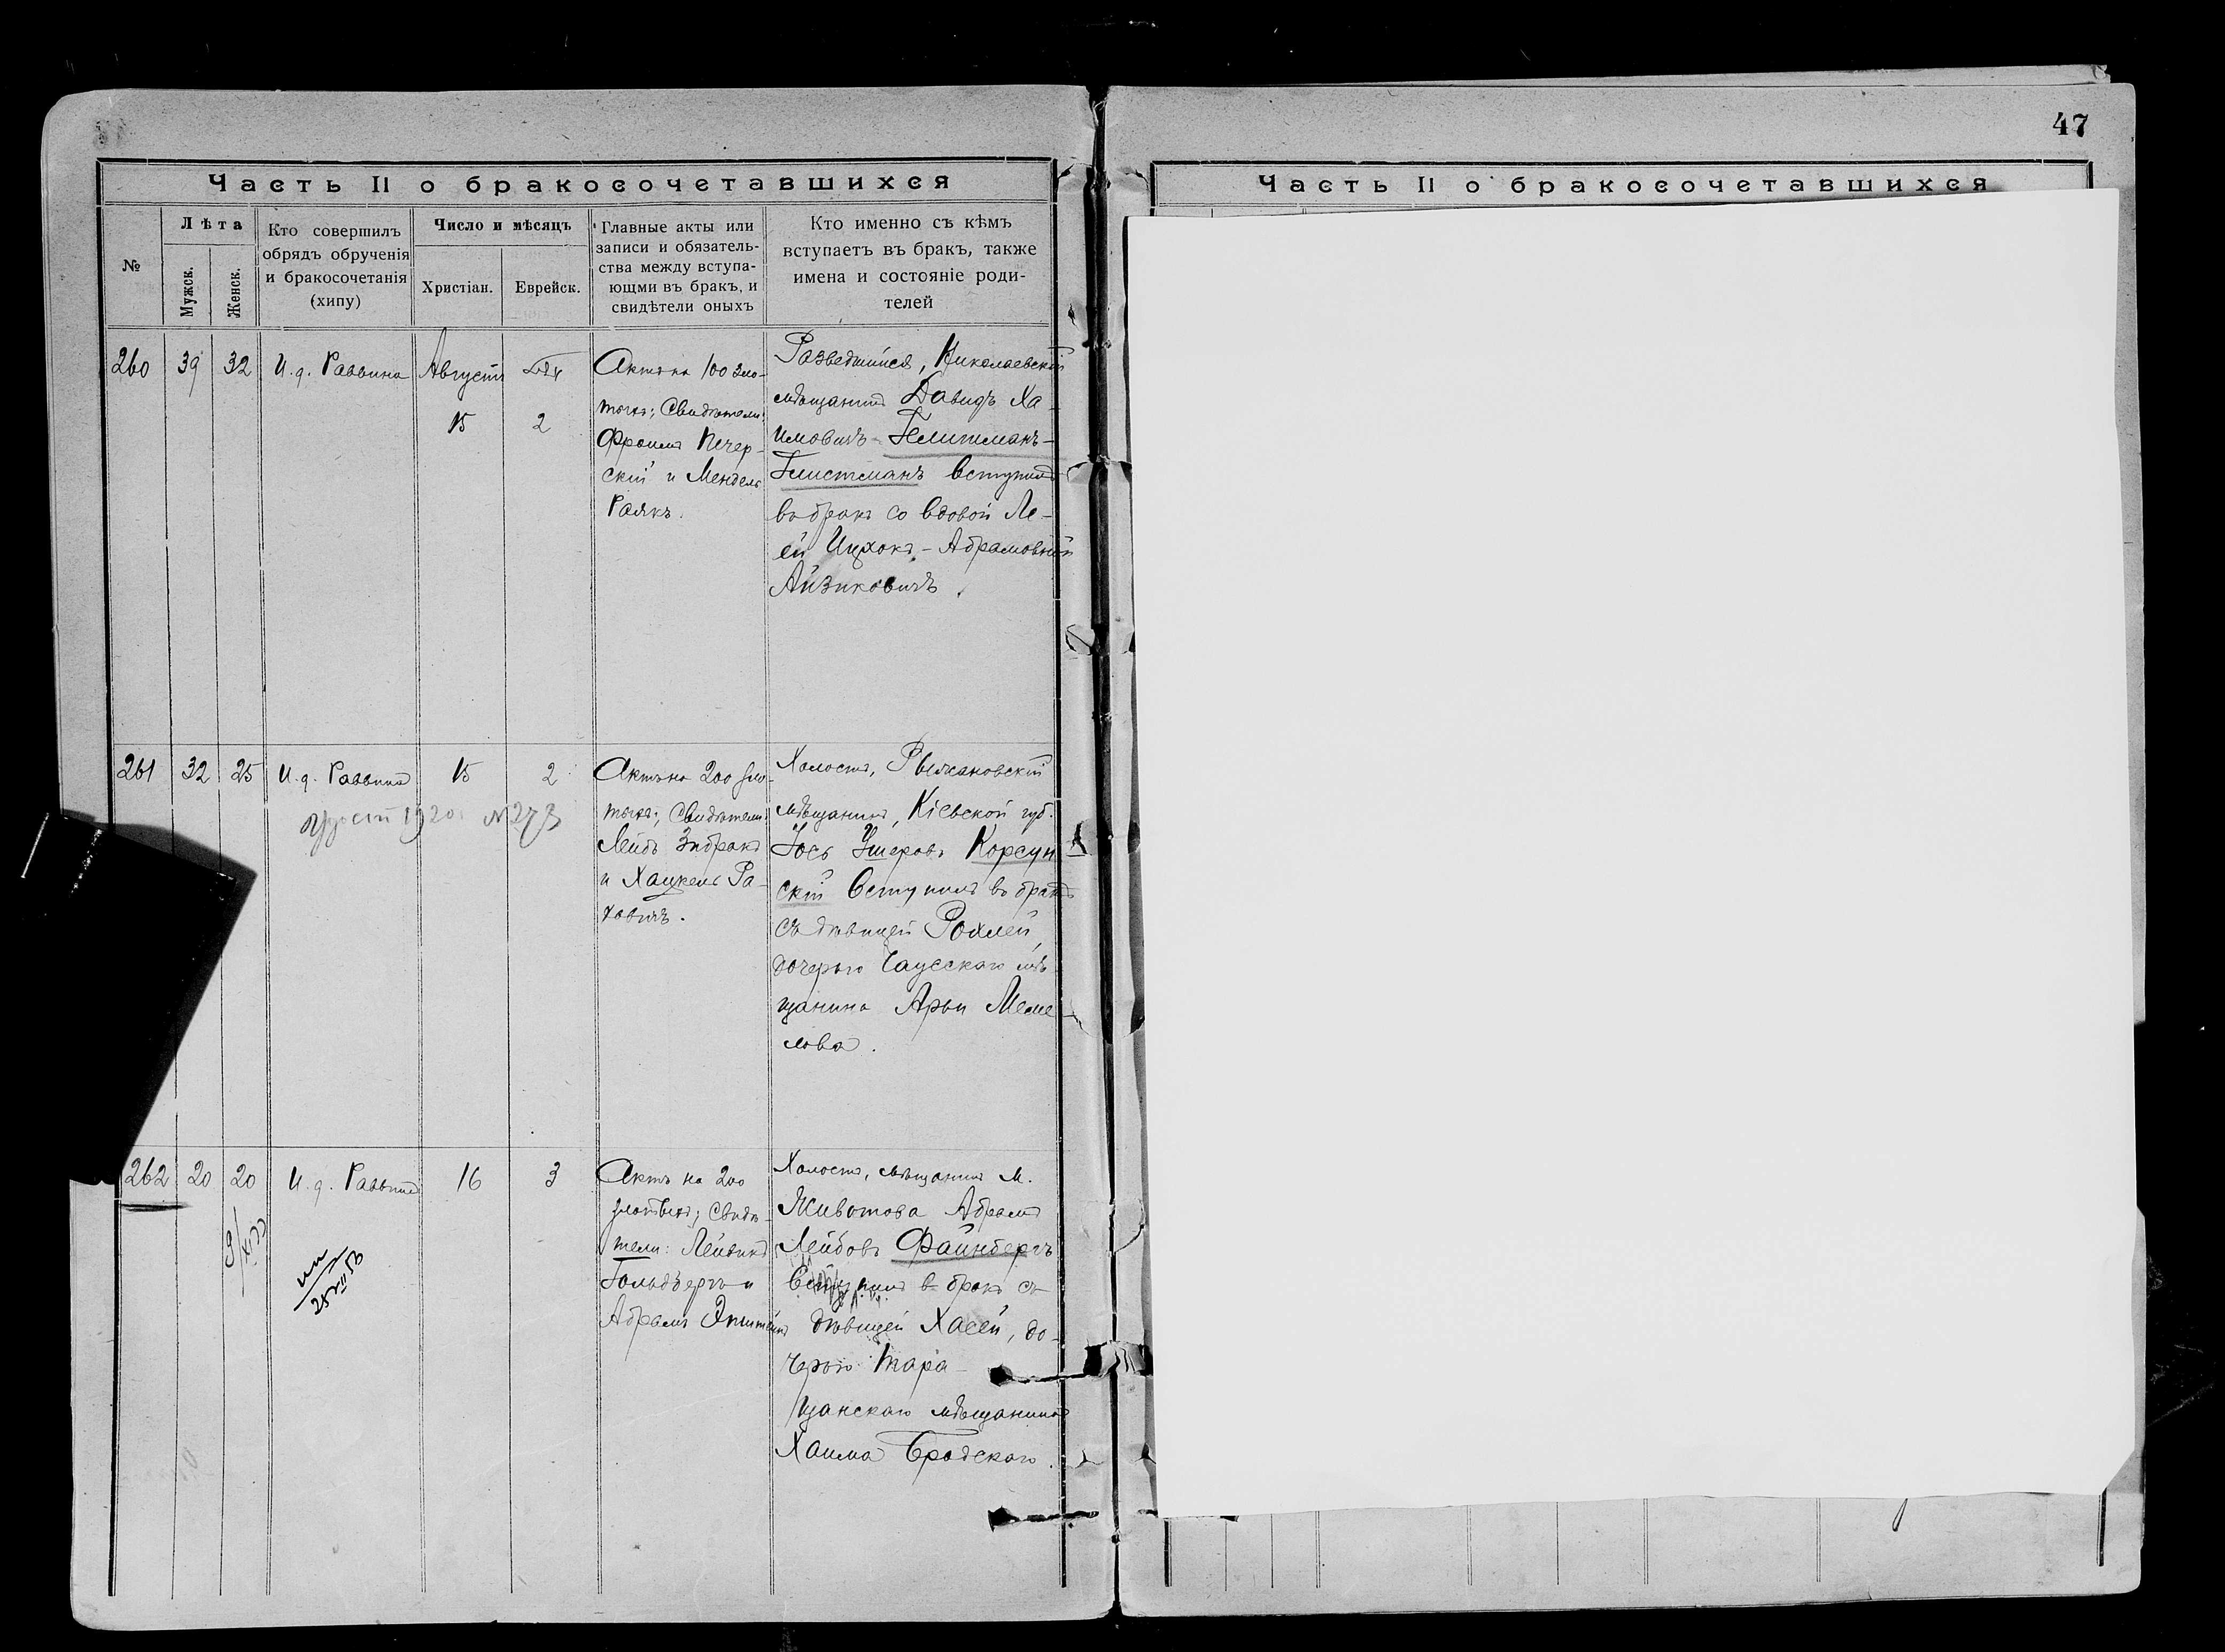 47
Часть II о бракосочетавшихся
Часть II о бракосочетавшихся
№
Лѣта
Мужск.
Женск.
Кто совершилъ
обрядъ обрученія
и бракосочетанія
(хипу)
Число и мѣсяцъ
Христіан.
Еврейск.
Главные акты или
записи и обязатель-
ства между вступа-
ющми въ бракъ, и
свидѣтели оныхъ
Кто именно съ кѣмъ
вступаетъ въ бракъ, также
имена и состояніе роди-
телей
260
39
32
И. д. Раввина
Августъ
15
2
Актъ на 100 зло-
тыхъ; Свидѣтели:
Фроимъ Печер-
скій и Мендель
Раякъ.
Разведшійся, Николаевскій
мѣщанинъ Давидъ Ха-
имовичъ-Гелитманъ-
Глистманъ вступилъ
въ бракъ со вдовой Ле-
ей Ицхокъ-Абрамовной
Айзиковичъ.
261
32
25
И. д. Раввина
15
2
1920 №273
Актъ на 200 зло-
тыхъ; Свидѣтели:
Лейбъ
и Хацкель Ра-
ховичъ.
Холостъ, Рыжановскій
мѣщанинъ, Кіевской губ.
Іось Ушеровъ Корсун-
скій вступилъ въ бракъ
съ дѣвицей Рохлей,
дочерью Чаусскаго мѣ-
щанина Арьи Меме-
лова.
262
20
20
И. д. Раввина
16
3
Актъ на 200
злотыхъ; Свидѣ-
тели: Лейзикъ
Гольдбергъ и
Абрамъ Эпштейнъ
Холостъ, мѣщанинъ м.
Животова Абрамъ
Лейбовъ Файнбергъ
Вступилъ въ бракъ съ
дѣвицей Хасей, до-
черью Тара-
щанскаго мѣщанина
Хаима Бродскаго.